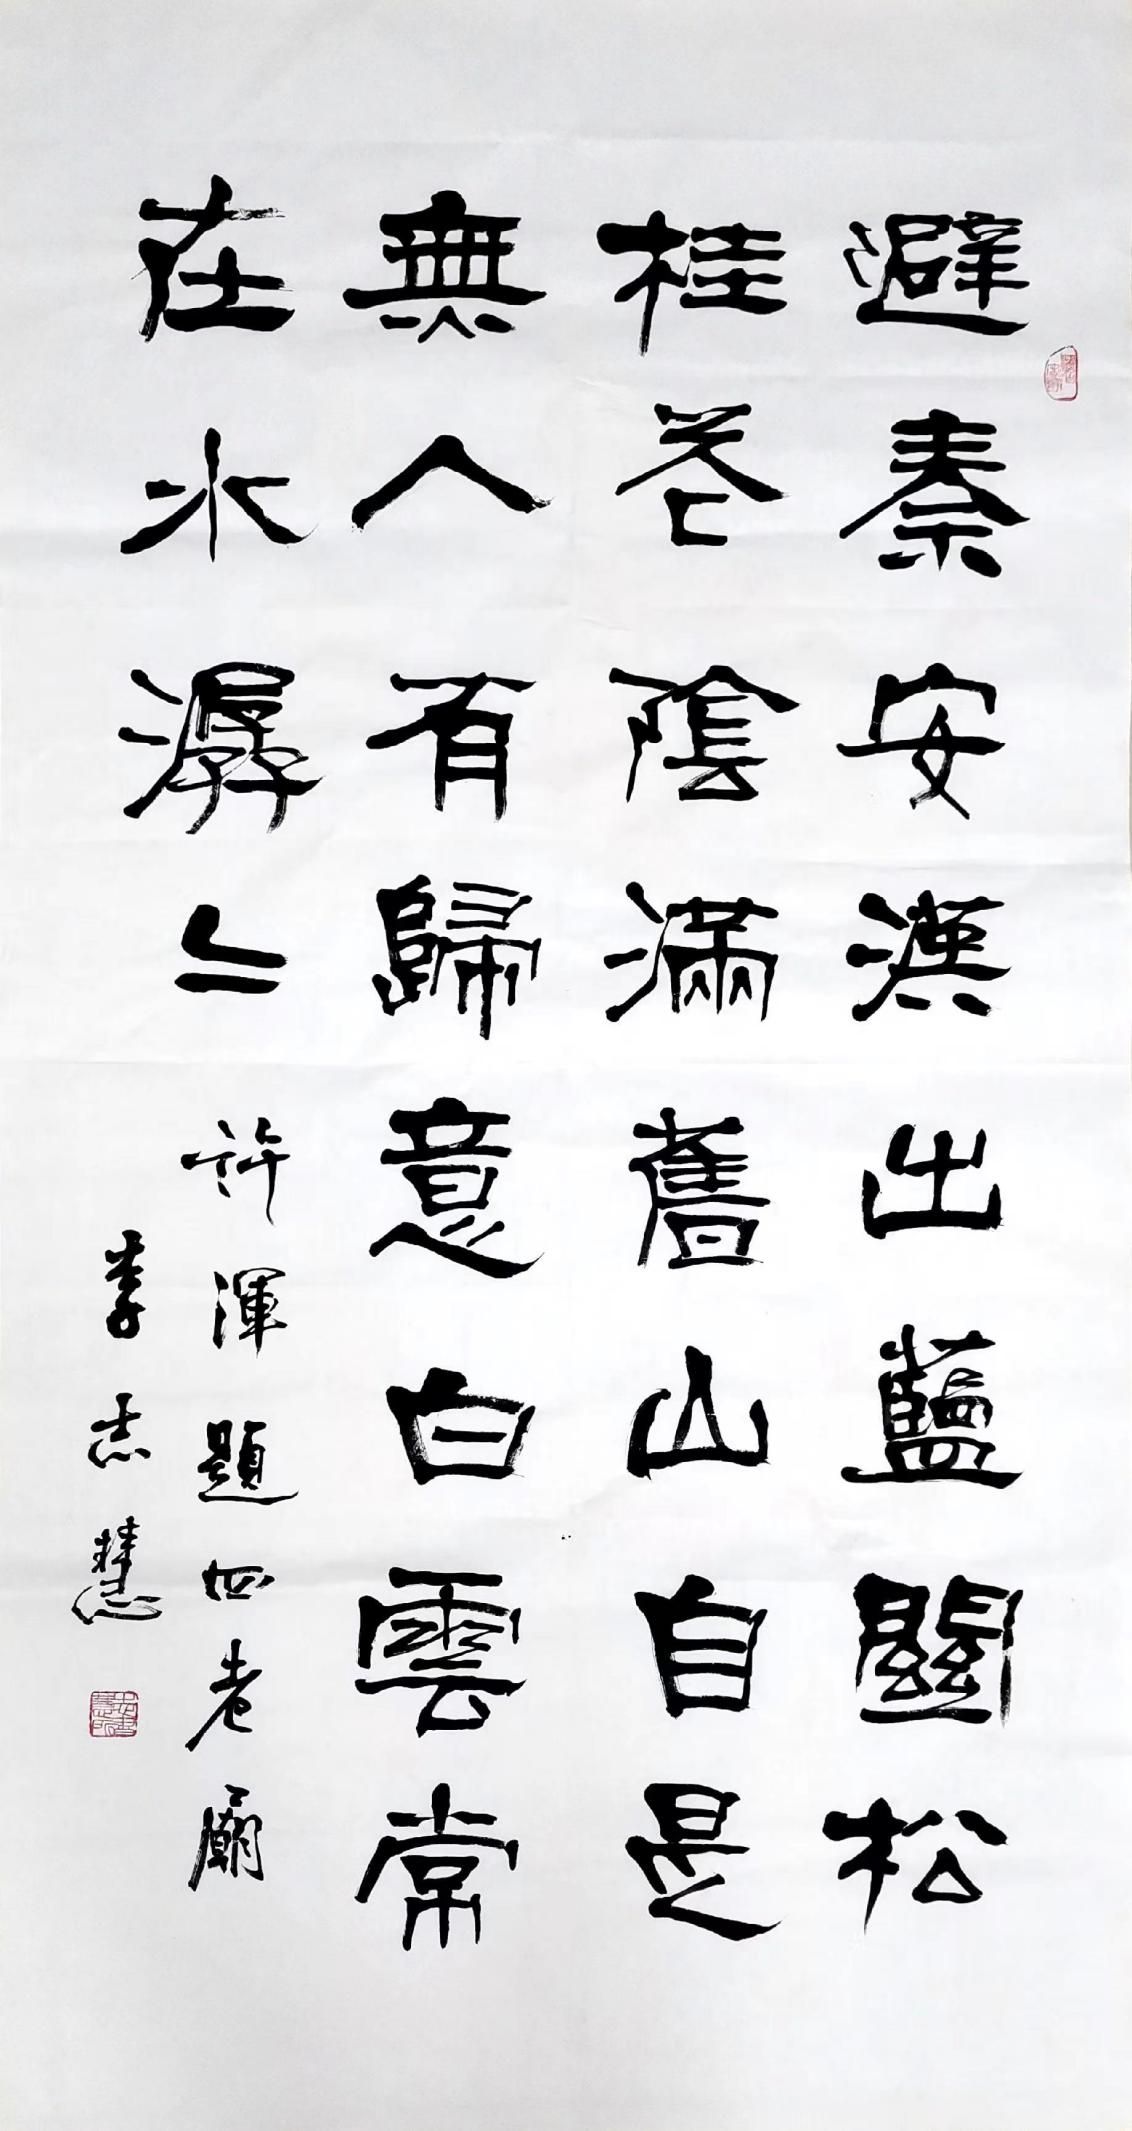 避秦安漢出藍關松
桂花陰滿舊山自是
無人有歸意白雲常
在水潺〻
許渾題四老廟
李志慧